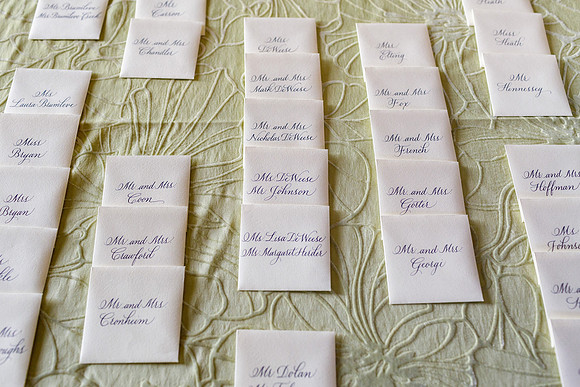 Mr. Brumleve
Mrs. Brumleve Cook
Mr.
Laura Brumleve
Miss
Bryan
Bryan
Mrs
Mr.
Carson
Mr. and Mrs
Chandler
Mr. and Mrs
Coon
Mr. and Mrs
Crawford
Mr. and Mrs
Cronheim
Ms.
DeWeese
Mr. and Mrs
Mark DeWeese
Mr. and Mrs
Nicholas DeWeese
Ms DeWeese
Mr. Johnson
Ms Lisa DeWeese
Ms Margaret Herder
Mr. Dolan
Ms.
Mr. and Mrs
Fox
Mr. and Mrs
French
Mr. and Mrs
Mr. and Mrs
George
Heath
Miss
Heath
Mr.
Hennessey
Mr. and Mrs
Hoffman
Mr. and
Mr. and
Mr. and